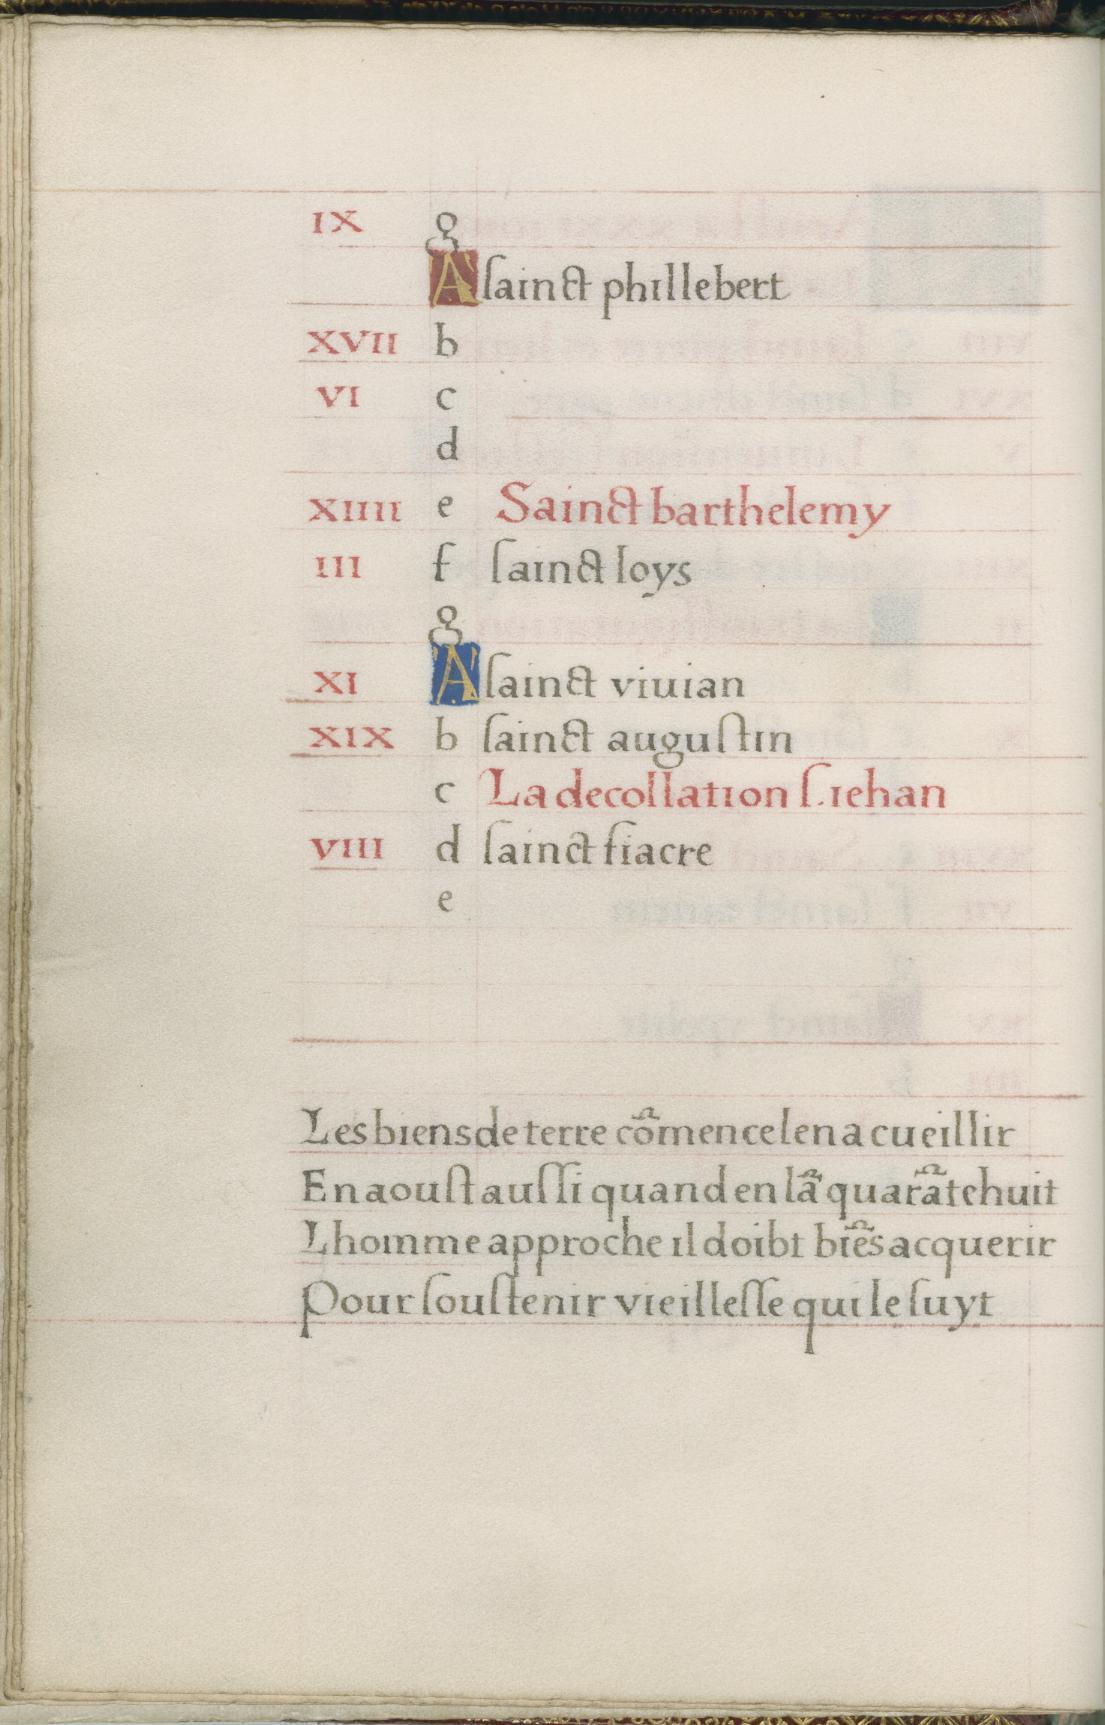 IX g
A sainct phillebert
XVII b
VI c
d
XIIII e Sainct barthelemy
III f sainct loys
g
XI A sainct viuian
XIX b sainct augustin
c La decollation s. iehan
VIII d sainct fiacre
e
Les biens de terre cõmence len a cueillir
En aoust aussi quand en lã quarãtehuit
Lhomme approche il doibt biẽs acquerir
Pour soustenir vieillesse qui le suyt